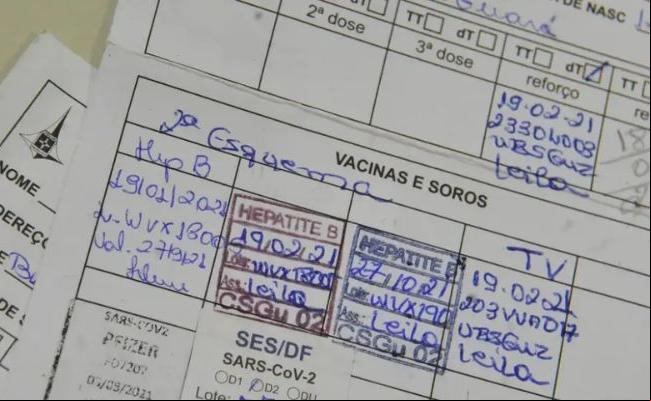 Guará
DE NASC
2ª dose
TT dT
3ª dose
TT dT
reforço
TT
re
19.02.21
UBSGuz
Leila
VACINAS E SOROS
2º Esquema
Hep B
19/01/2021
L. WVX1B00
Val.
HEPATITE B
19/02/21
Lote:
Ass.: Leila
CSGu 02
HEPATITE B
27/10/21
Lote: WVX190
Ass.: Leila
CSGu 02
TV
19.02.21
203VVA017
UBSGuz
Leila
NOME
DEREÇO
DE
SARS-COV2
PFIZER
SES/DF
SARS-CoV-2
D1 D2 DU
Lote: